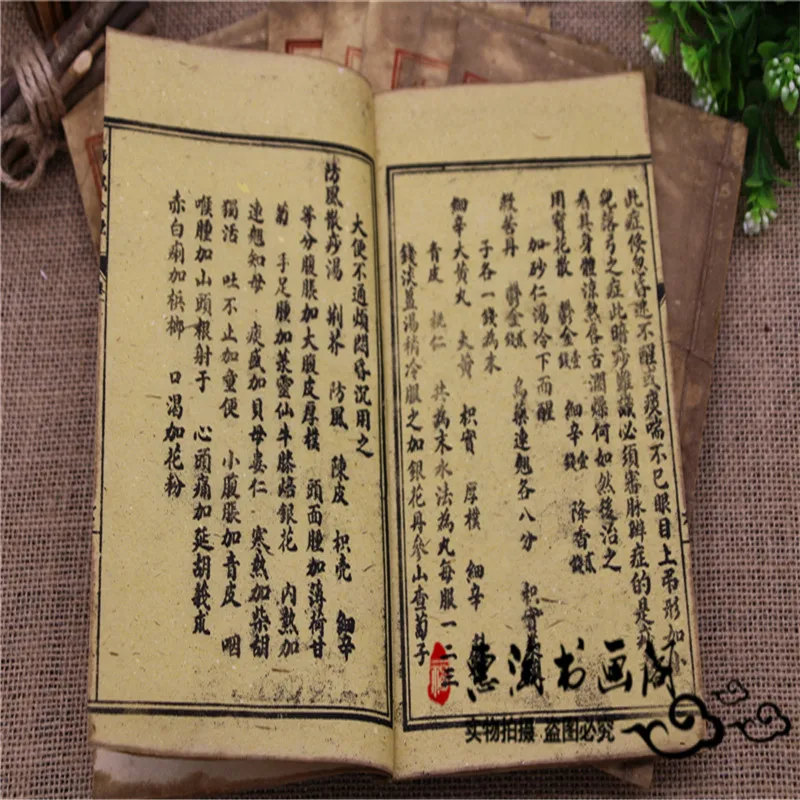 此症倏忽昏迷不醒或痰喘不已眼目上吊形如小
兒落弓之症此暗痧難識必須審脉辨症的是痧
看其身體涼熱唇舌潤燥何如然後治之
用寶花散 鬱金錢壹 細辛錢壹 降香錢貳
加砂仁湯冷下而醒
救苦丹 鬱金錢貳 烏藥連翹各八分 枳實
子各一錢為末
細辛大黃丸 大黃 枳實 厚樸 細辛
青皮 桃仁 共為末水法為丸每服一二三
錢淡薑湯稍冷服之加銀花丹參山查蔔子
大便不通煩悶昏沉用之
防風散痧湯 荆芥 防風 陳皮 枳壳 細辛
等分腹脹加大腹皮厚樸 頭面腫加薄荷甘
菊 手足腫加葳靈仙牛膝焙銀花 内熱加
連翹知母 痰盛加貝母蔞仁 寒熱加柴胡
獨活 吐不止加童便 小腹脹加青皮 咽
喉腫加山頭根射干 心頭痛加延胡莪朮
赤白痢加檳榔 口渴加花粉
书画阁
实物拍摄 盗图必究